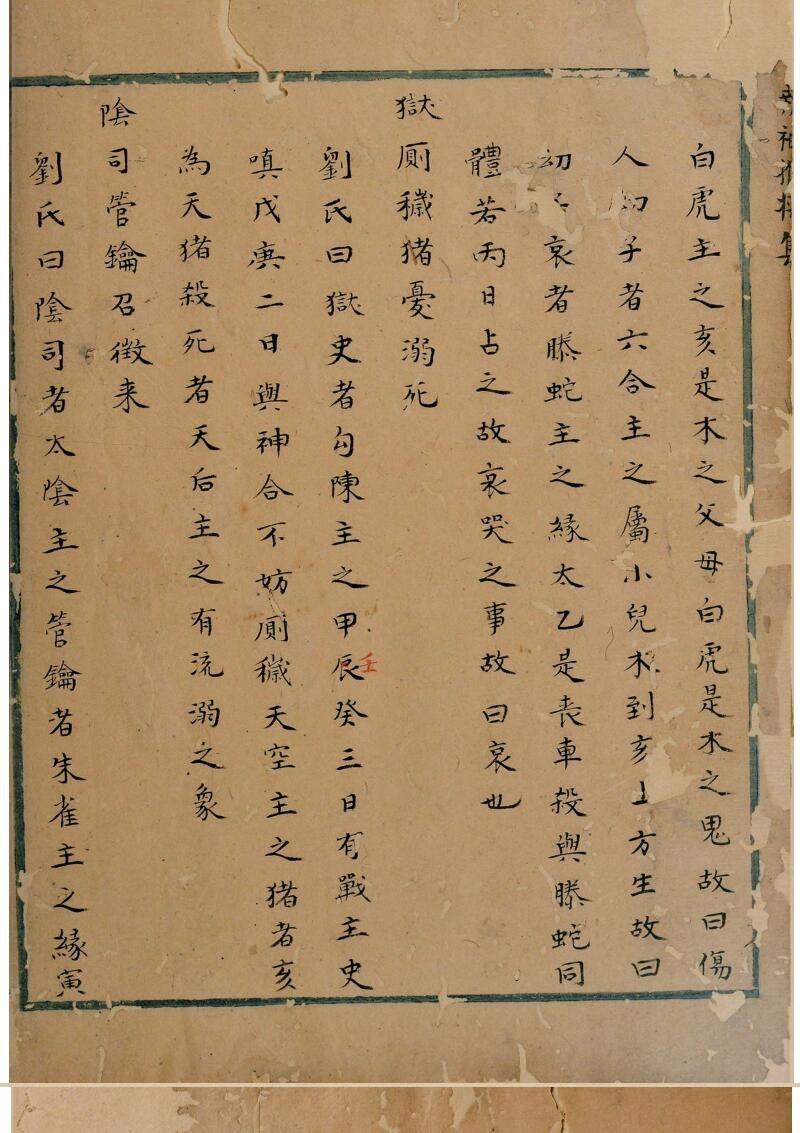 白虎主之亥是木之父母白虎是木之鬼故曰傷
人幼子者六合主之屬小兒木到亥上方生故曰
幼子哀者螣蛇主之緣太乙是喪車殺與螣蛇同
體若丙日占之故哀哭之事故曰哀也
獄厠穢猪憂溺死
劉氏曰獄吏者勾陳主之甲辰壬癸三日有戰主史
嗔戊庚二日與神合不妨厠穢天空主之猪者亥
為天猪殺死者天后主之有流溺之象
陰司管鑰召徵来
劉氏曰陰司者太陰主之管鑰者朱雀主之緣寅